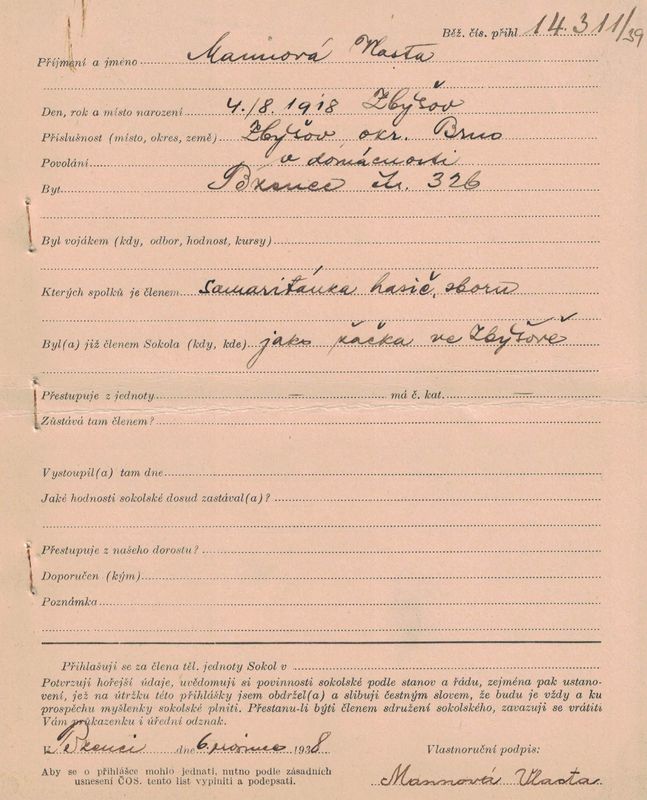 Běž. čís. přihl. 14.311/39
Příjmení a jméno Mannová Vlasta
Den, rok a místo narození 4./8. 1918 Zbýšov
Příslušnost (místo, okres, země) Zbýšov okr. Brno
Povolání v domácnosti
Byt Bzenec čr. 326
Byl vojákem (kdy, odbor, hodnost, kursy)
Kterých spolků je členem Samaritánka hasič. sboru
Byl(a) již členem Sokola (kdy, kde) jako žačka ve Zbýšově
Přestupuje z jednoty — má č. kat. —
Zůstává tam členem?
Vystoupil(a) tam dne
Jaké hodnosti sokolské dosud zastával(a)?
Přestupuje z našeho dorostu?
Doporučen (kým)
Poznámka
Přihlašuji se za člena těl. jednoty Sokol v
Potvrzuji hořejší údaje, uvědomuji si povinnosti sokolské podle stanov a řádu, zejména pak ustano-
vení, jež na útržku této přihlášky jsem obdržel(a) a slibuji čestným slovem, že budu je vždy a ku
prospěchu myšlenky sokolské plniti. Přestanu-li býti členem sdružení sokolského, zavazuji se vrátiti
Vám průkazenku i úřední odznak.
V Bzenci dne 6. února 1938 Vlastnoruční podpis:
Aby se o přihlášce mohlo jednati, nutno podle zásadních
usnesení ČOS. tento list vyplniti a podepsati. Mannová Vlasta